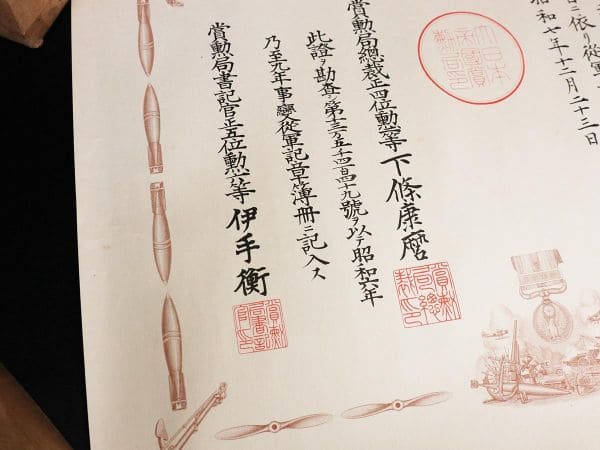 ニ依リ從軍
昭和七年十二月二十三日
大日本帝國賞勳局印
賞勳局總裁正四位勳等 下條康麿
賞勳局總裁印
此證ヲ勘査シ第十三万五千四百四十九號ヲ以テ昭和六年
乃至九年事變從軍記章簿冊ニ記入ス
賞勳局書記官正五位勳六等 伊手衡
賞勳局書記官印